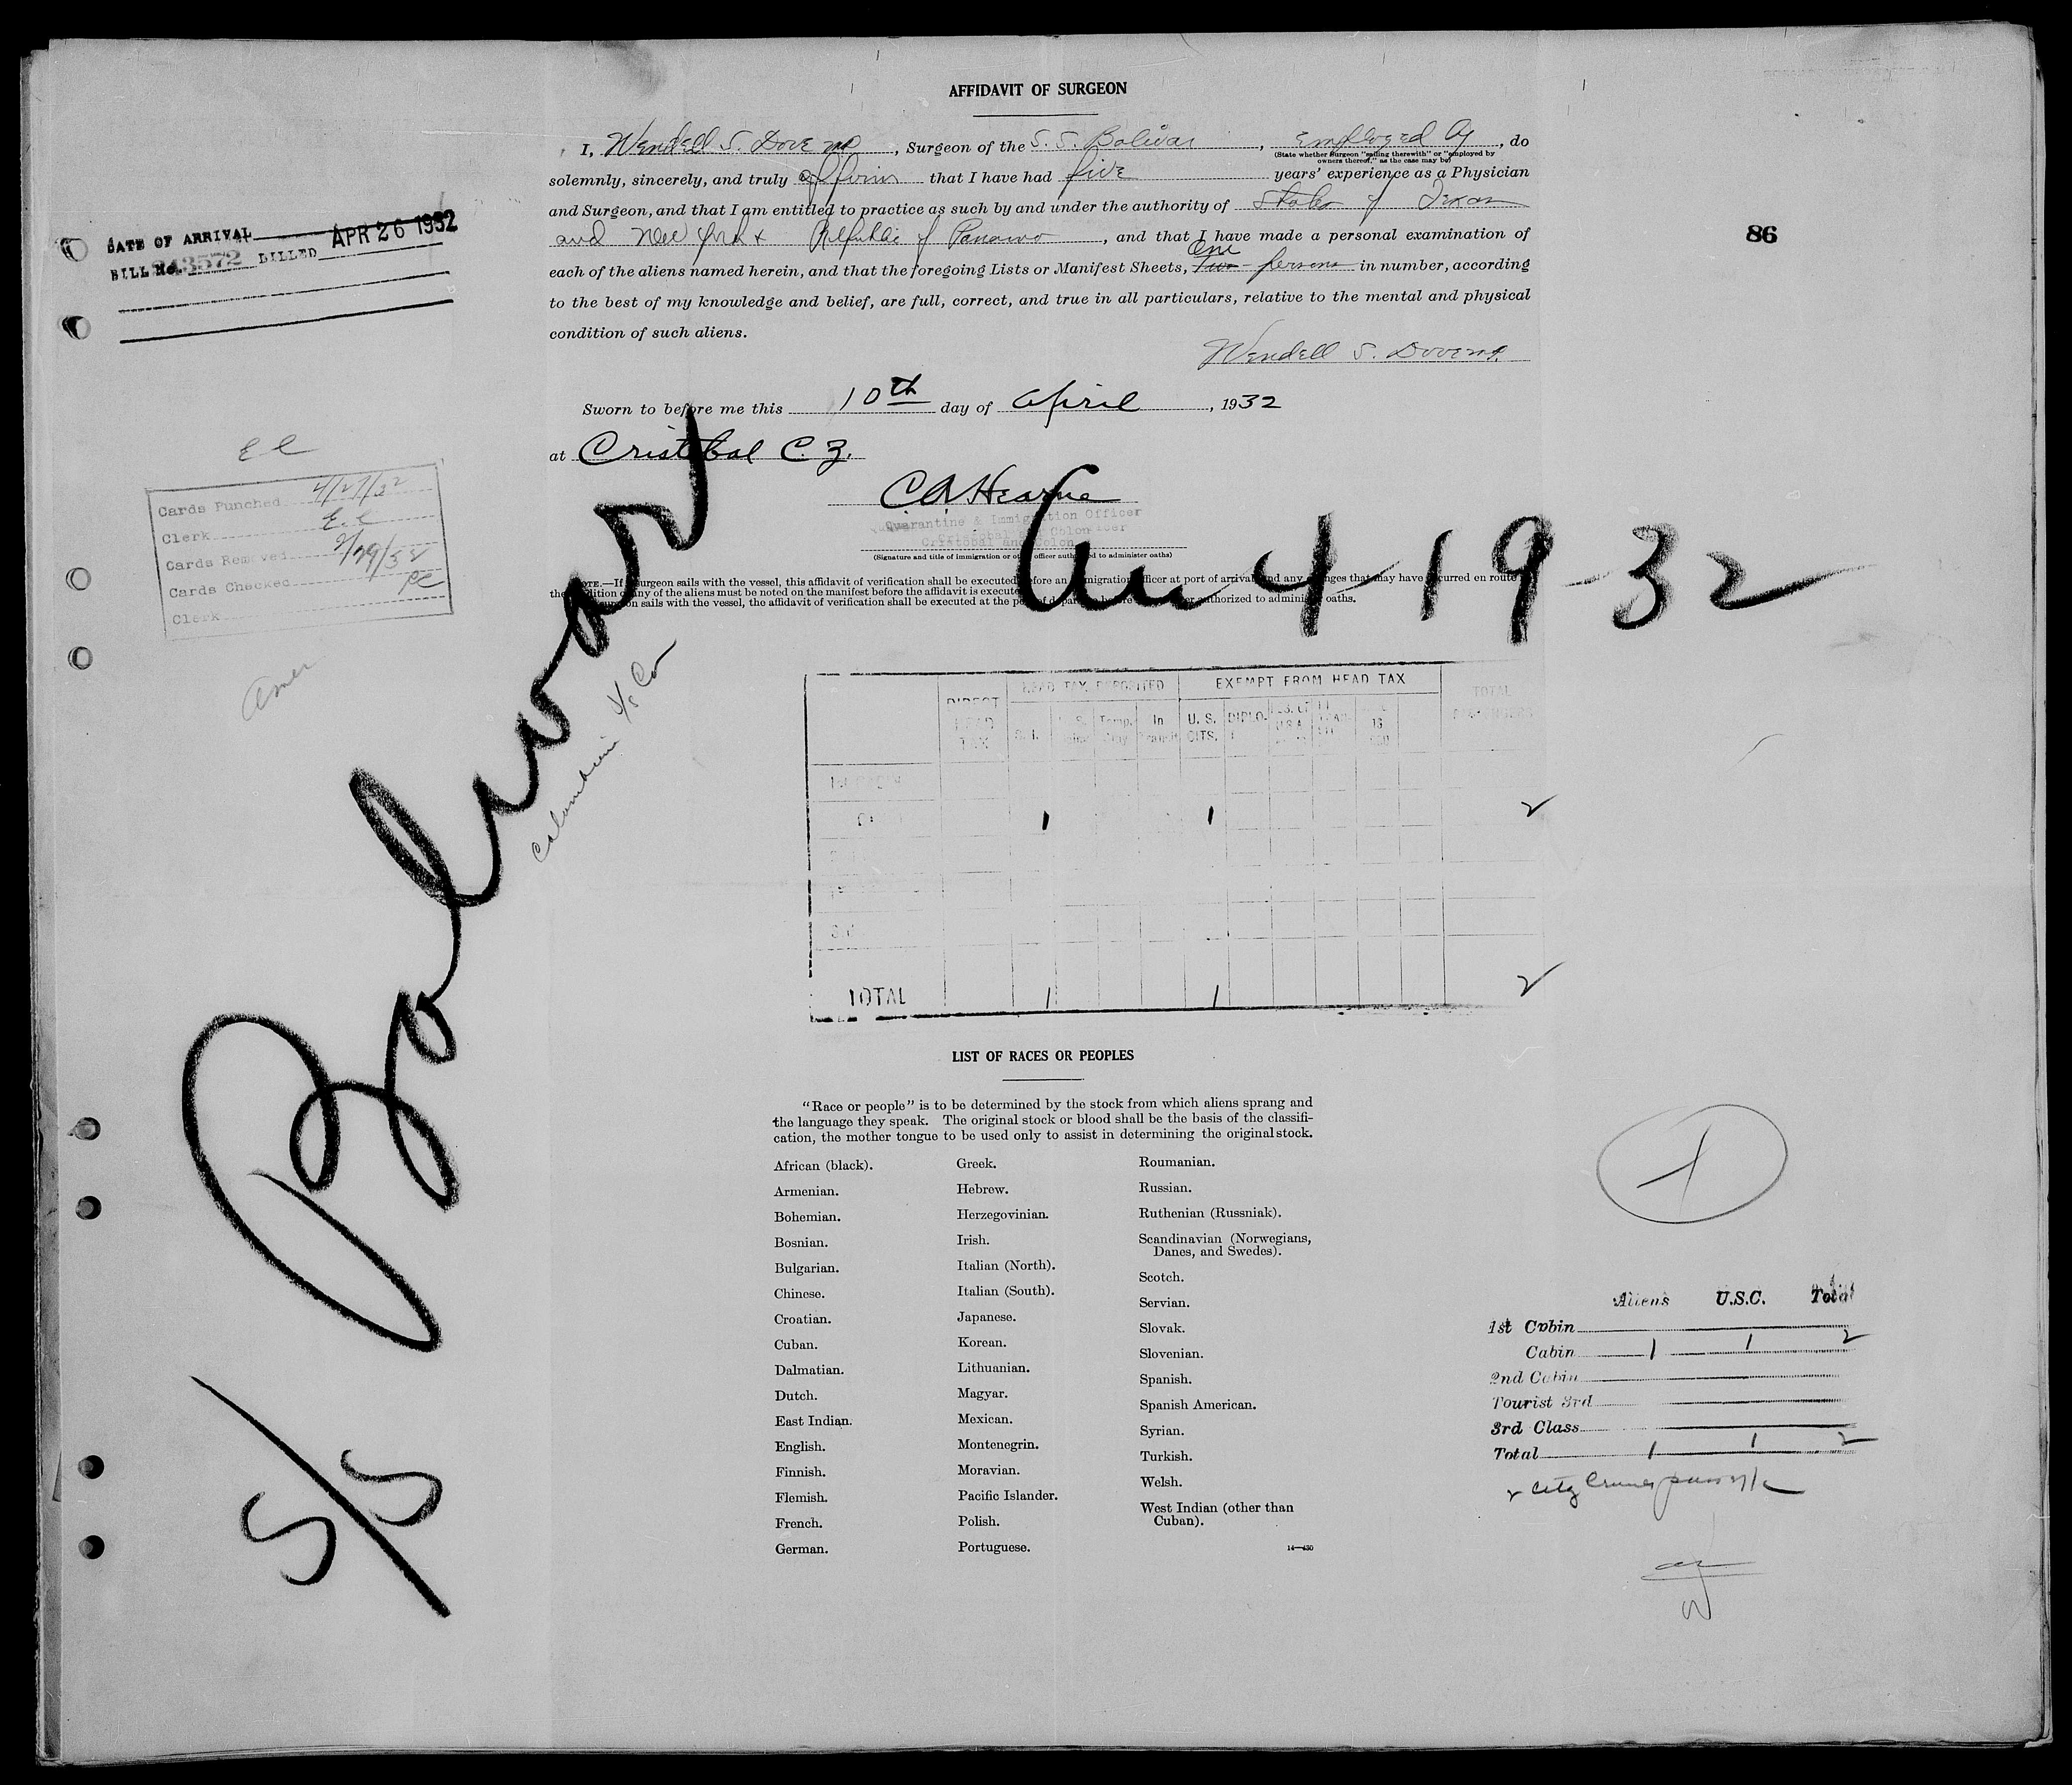 AFFIDAVIT OF SURGEON
I, Wendell S. Dovens, Surgeon of the S. S. Bolivar, employed by, do
(State whether Surgeon "sailing therewith" or "employed by
owners thereof," as the case may be)
solemnly, sincerely, and truly affirm that I have had five years' experience as a Physician
and Surgeon, and that I am entitled to practice as such by and under the authority of States of Texas
and New York + Republic of Panama, and that I have made a personal examination of
One
each of the aliens named herein, and that the foregoing Lists or Manifest Sheets, Two persons in number, according
to the best of my knowledge and belief, are full, correct, and true in all particulars, relative to the mental and physical
condition of such aliens.
Wendell S. Dovens
Sworn to before me this 10th day of April, 1932
at Cristobal C. Z.
C. A. Hearne
Quarantine & Immigration Officer
Cristobal and Colon
(Signature and title of immigration or other officer authorized to administer oaths)
NOTE.—If surgeon sails with the vessel, this affidavit of verification shall be executed before an immigration officer at port of arrival and any changes that may have occurred en route
the condition of any of the aliens must be noted on the manifest before the affidavit is executed
sails with the vessel, the affidavit of verification shall be executed at the port of departure before authorized to administer oaths.
DATE OF ARRIVAL APR 26 1932
BILL No. 243572 BILLED
86
EC
Cards Punched 4/27/32
Clerk E.C
Cards Removed
Cards Checked PC
Clerk
Amer
S/S Bolivar
Columbian S/S Co
Arr 4-19-32
DIRECT HEAD TAX
HEAD TAX DEPOSITED
EXEMPT FROM HEAD TAX
TOTAL PASSENGERS
Temp. In U. S. CITS. DIPLO. U.S.A. 13
1 1 2
TOTAL 1 1 2
LIST OF RACES OR PEOPLES
"Race or people" is to be determined by the stock from which aliens sprang and
the language they speak. The original stock or blood shall be the basis of the classifi-
cation, the mother tongue to be used only to assist in determining the original stock.
African (black).
Armenian.
Bohemian.
Bosnian.
Bulgarian.
Chinese.
Croatian.
Cuban.
Dalmatian.
Dutch.
East Indian.
English.
Finnish.
Flemish.
French.
German.
Greek.
Hebrew.
Herzegovinian.
Irish.
Italian (North).
Italian (South).
Japanese.
Korean.
Lithuanian.
Magyar.
Mexican.
Montenegrin.
Moravian.
Pacific Islander.
Polish.
Portuguese.
Roumanian.
Russian.
Ruthenian (Russniak).
Scandinavian (Norwegians,
Danes, and Swedes).
Scotch.
Servian.
Slovak.
Slovenian.
Spanish.
Spanish American.
Syrian.
Turkish.
Welsh.
West Indian (other than
Cuban).
14—430
1
Aliens U.S.C. Total
1st Cabin
Cabin 1 1 2
2nd Cabin
Tourist 3rd
3rd Class
Total 1 1 2